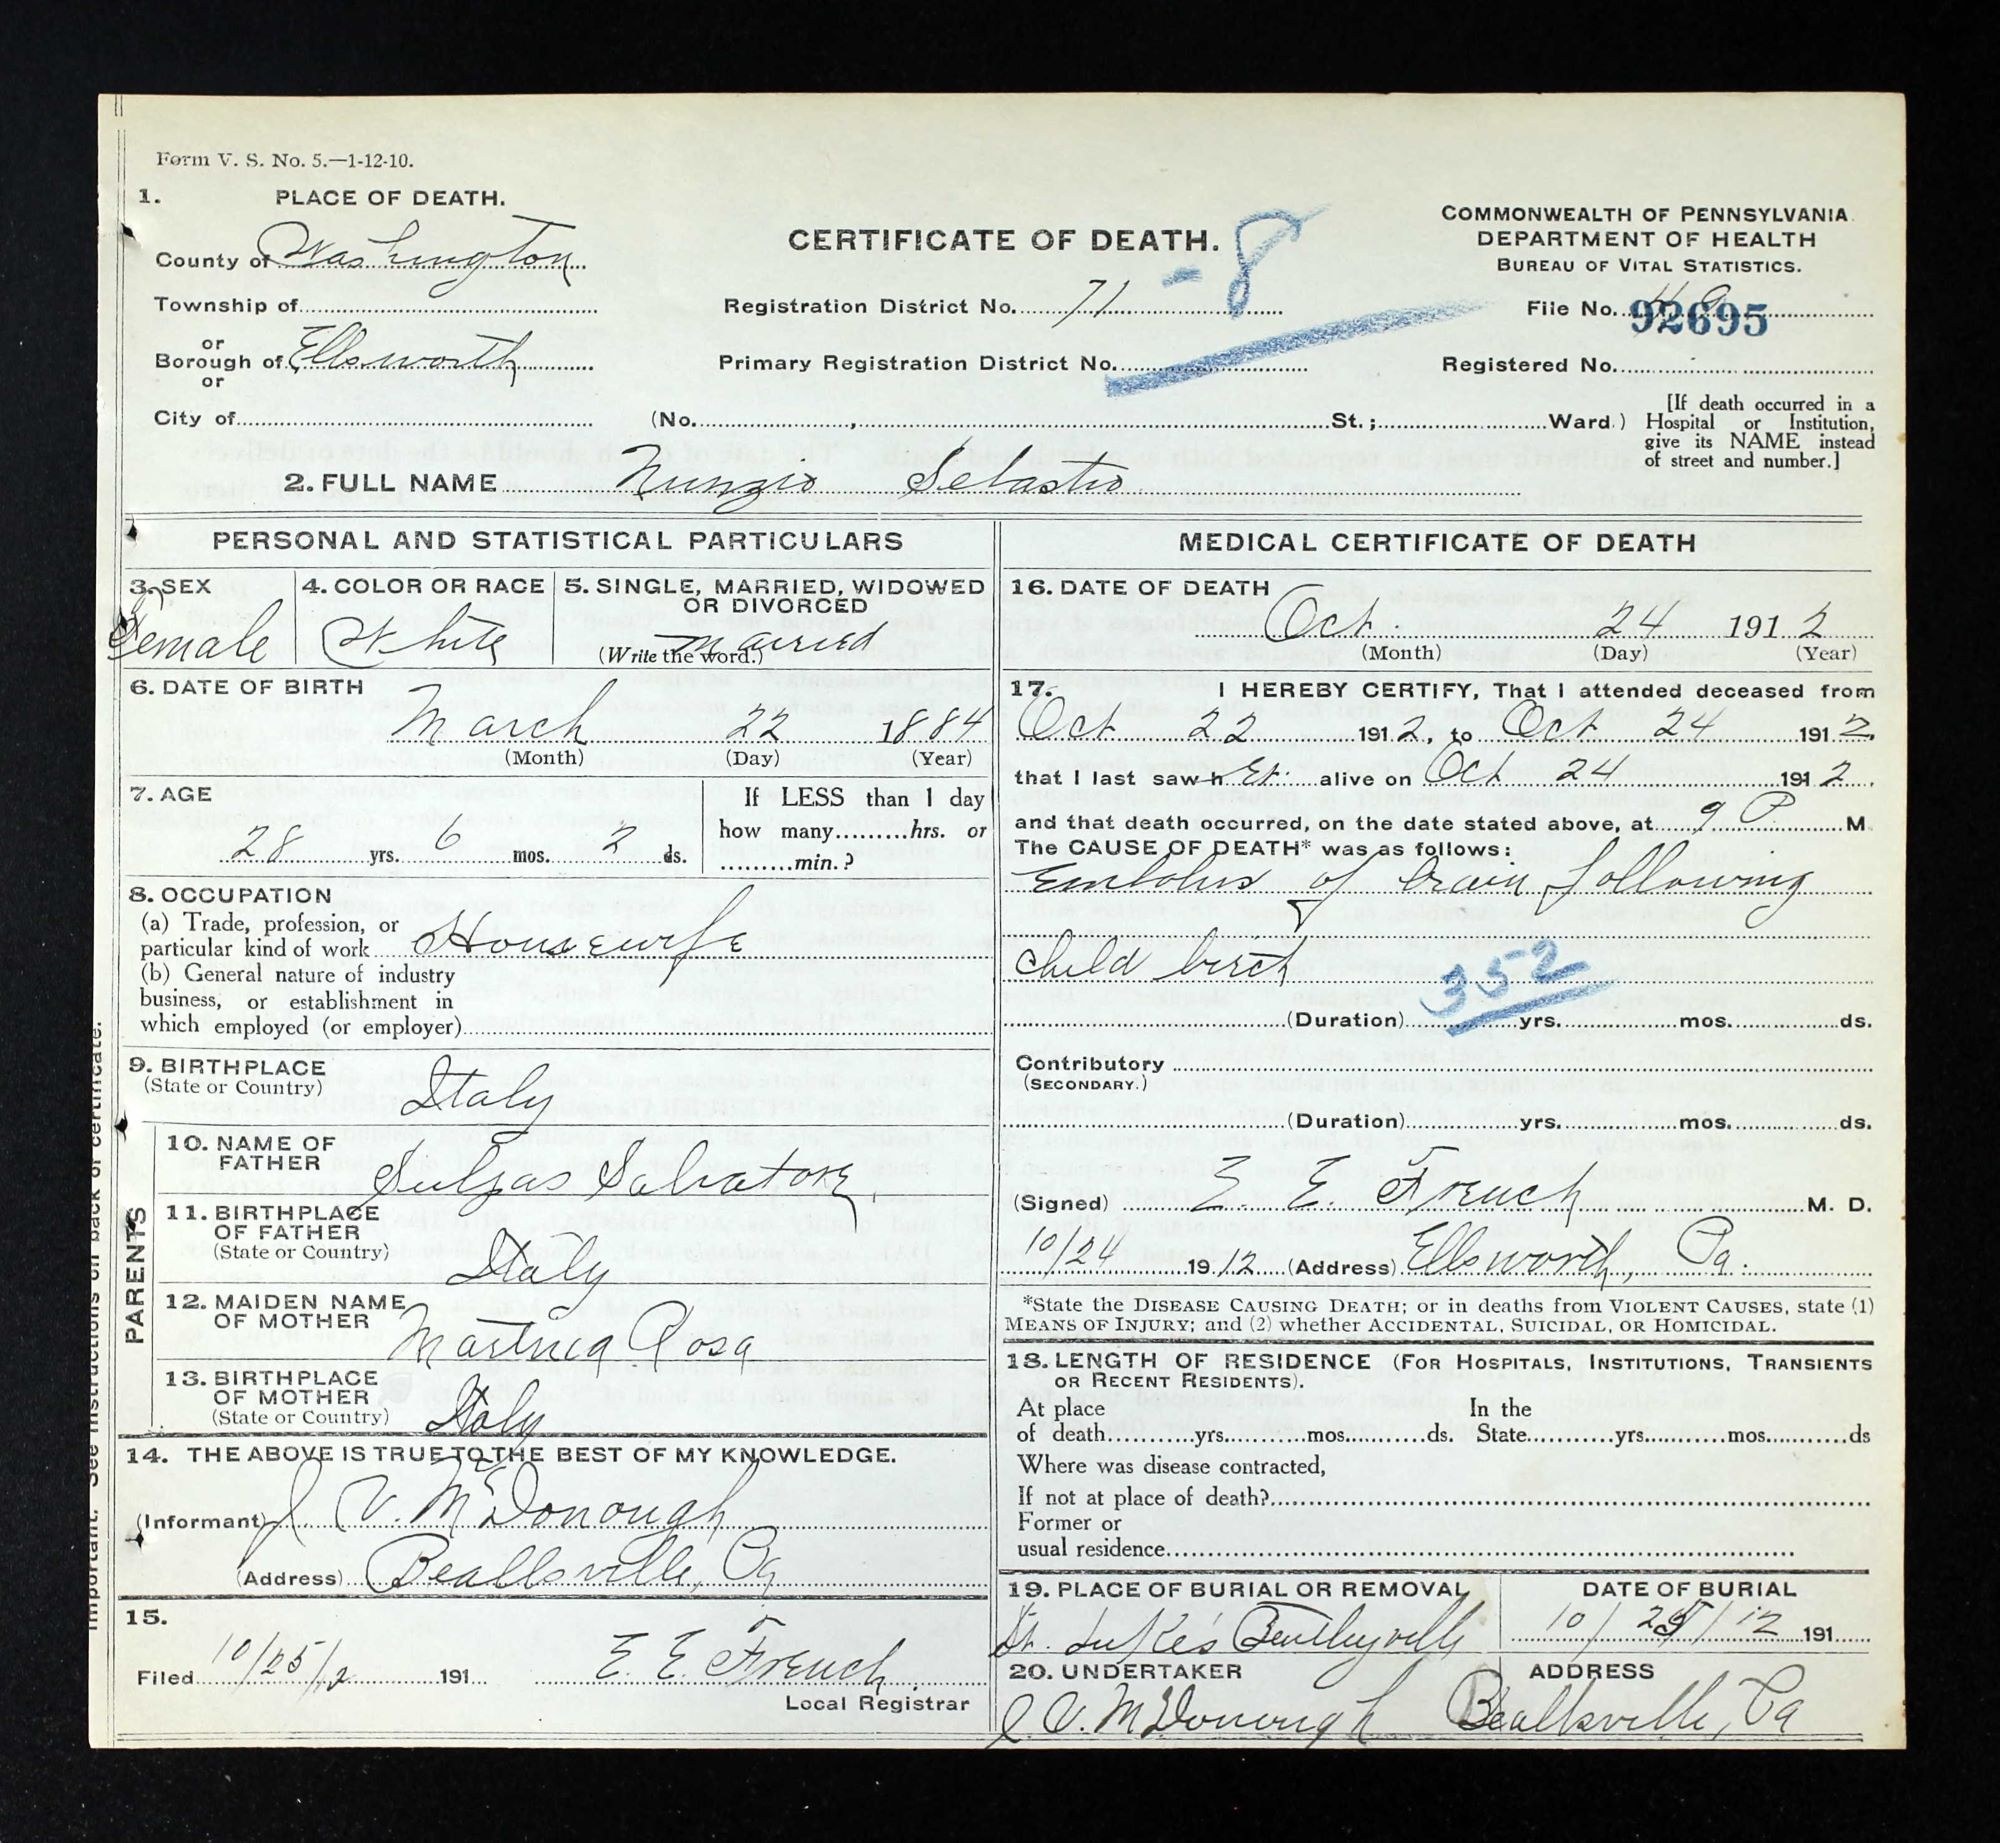 Form V. S. No. 5.—1-12-10.
1. PLACE OF DEATH.
County of Washington
Township of
or
Borough of Ellsworth
or
City of
CERTIFICATE OF DEATH.
-8
Registration District No. 71
Primary Registration District No.
(No. , St.; Ward.)
COMMONWEALTH OF PENNSYLVANIA
DEPARTMENT OF HEALTH
BUREAU OF VITAL STATISTICS.
File No. 92695
Registered No.
[If death occurred in a
Hospital or Institution,
give its NAME instead
of street and number.]
2. FULL NAME Nunzio Sebastio
PERSONAL AND STATISTICAL PARTICULARS
3. SEX
Female
4. COLOR OR RACE
White
5. SINGLE, MARRIED, WIDOWED
OR DIVORCED
(Write the word.) married
6. DATE OF BIRTH
March 22 1884
(Month) (Day) (Year)
7. AGE
28 yrs. 6 mos. 2 ds.
If LESS than 1 day
how many hrs. or
min.?
8. OCCUPATION
(a) Trade, profession, or
particular kind of work Housewife
(b) General nature of industry
business, or establishment in
which employed (or employer)
9. BIRTHPLACE
(State or Country)
Italy
PARENTS
10. NAME OF
FATHER
Salvatore
11. BIRTHPLACE
OF FATHER
(State or Country)
Italy
12. MAIDEN NAME
OF MOTHER
Rosa
13. BIRTHPLACE
OF MOTHER
(State or Country)
Italy
14. THE ABOVE IS TRUE TO THE BEST OF MY KNOWLEDGE.
(Informant) J. V. McDonough
(Address) Beallsville, Pa
15.
Filed 10/25/12 191
E. E. French
Local Registrar
Important. See instructions on back of certificate.
MEDICAL CERTIFICATE OF DEATH
16. DATE OF DEATH
Oct. 24 1912
(Month) (Day) (Year)
17. I HEREBY CERTIFY, That I attended deceased from
Oct 22 1912, to Oct 24 1912
that I last saw her alive on Oct 24 1912
and that death occurred, on the date stated above, at 9 P M
The CAUSE OF DEATH* was as follows:
Embolus of brain following
child birth
352
(Duration) yrs. mos. ds.
Contributory
(SECONDARY.)
(Duration) yrs. mos. ds.
(Signed) E. E. French M. D.
10/24 1912 (Address) Ellsworth, Pa.
*State the DISEASE CAUSING DEATH; or in deaths from VIOLENT CAUSES, state (1)
MEANS OF INJURY; and (2) whether ACCIDENTAL, SUICIDAL, OR HOMICIDAL.
18. LENGTH OF RESIDENCE (FOR HOSPITALS, INSTITUTIONS, TRANSIENTS
OR RECENT RESIDENTS).
At place In the
of death yrs. mos. ds. State yrs. mos. ds
Where was disease contracted,
If not at place of death?
Former or
usual residence
19. PLACE OF BURIAL OR REMOVAL
St. Luke's Bentleyville
DATE OF BURIAL
10/25/12 191
20. UNDERTAKER
J. V. McDonough
ADDRESS
Beallsville, Pa